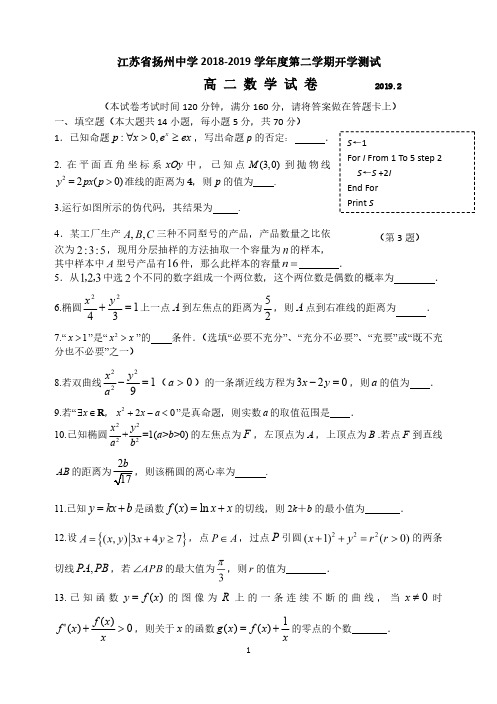 江苏省扬州中学 2018-2019 学年度第二学期开学测试
高 二 数 学 试 卷 2019.2
（本试卷考试时间 120 分钟，满分 160 分，请将答案做在答题卡上）
一、填空题（本大题共 14 小题，每小题 5 分，共 70 分）
1．已知命题 p : ∀x > 0, e^x ≥ ex ，写出命题 p 的否定： ．
2. 在平面直角坐标系 xOy 中，已知点 M(3,0) 到抛物线
y² = 2px(p > 0) 准线的距离为 4，则 p 的值为 ．
3.运行如图所示的伪代码，其结果为 .
S←1
For I From 1 To 5 step 2
S←S +2I
End For
Print S
（第 3 题）
4．某工厂生产 A, B, C 三种不同型号的产品，产品数量之比依
次为 2 : 3 : 5，现用分层抽样的方法抽取一个容量为 n 的样本，
其中样本中 A 型号产品有 16 件，那么此样本的容量 n = ．
5．从 1,2,3 中选 2 个不同的数字组成一个两位数，这个两位数是偶数的概率为 ．
6.椭圆 x²/4 + y²/3 = 1 上一点 A 到左焦点的距离为 5/2，则 A 点到右准线的距离为 ．
7.“ x > 1 ”是“ x² > x ”的 条件.（选填“必要不充分”、“充分不必要”、“充要”或“既不充
分也不必要”之一）
8.若双曲线 x²/a² − y²/9 = 1（ a > 0 ）的一条渐近线方程为 3x − 2y = 0，则 a 的值为 ．
9.若“ ∃x ∈ R， x² + 2x − a < 0 ”是真命题，则实数 a 的取值范围是 ．
10.已知椭圆 x²/a² + y²/b² =1(a>b>0) 的左焦点为 F ，左顶点为 A，上顶点为 B .若点 F 到直线
AB 的距离为 2b/√17，则该椭圆的离心率为 .
11.已知 y = kx + b 是函数 f(x) = ln x + x 的切线，则 2k＋b 的最小值为 ．
12.设 A = {(x, y)|3x + 4y ≥ 7}，点 P ∈ A，过点 P 引圆 (x + 1)² + y² = r²(r > 0) 的两条
切线 PA, PB，若 ∠APB 的最大值为 π/3，则 r 的值为 ．
13. 已知函数 y = f(x) 的图像为 R 上的一条连续不断的曲线，当 x ≠ 0 时
f′(x) + f(x)/x > 0，则关于 x 的函数 g(x) = f(x) + 1/x 的零点的个数 ．
1